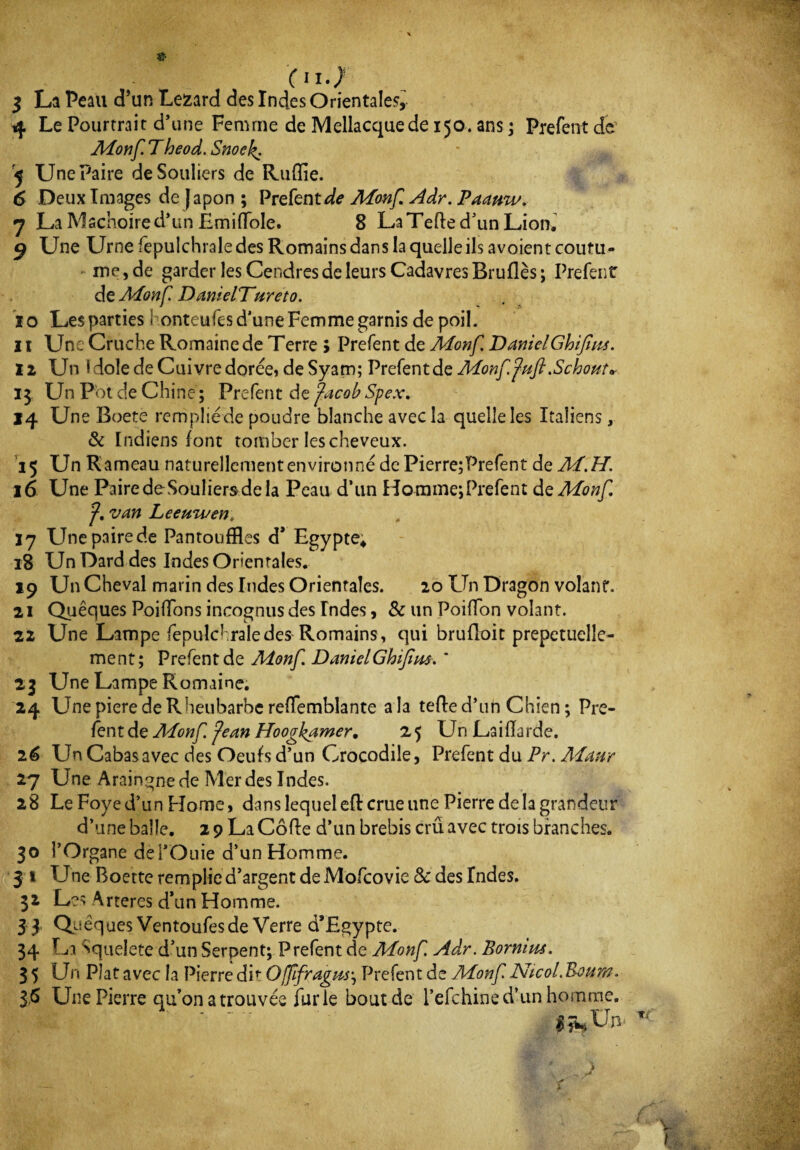 (11.)
3 La Peau d'un Lezard des Indes Orientales,
4 Le Pourtrait d'une Femme de Mellacque de 150. ans; Preſent de
Monſ. Theod. Snoek.
5 Une Paire de Souliers de Ruſſie.
6 Deux Images de Japon; Preſent de Monſ. Adr. Paauw.
7 La Machoire d'un Emiſſole. 8 La Teſte d'un Lion.
9 Une Urne ſepulchrale des Romains dans la quelle ils avoient coutu-
me, de garder les Cendres de leurs Cadavres Bruſlès; Preſent
de Monſ. Daniel Tureto.
10 Les parties honteuſes d'une Femme garnis de poil.
11 Une Cruche Romaine de Terre; Preſent de Monſ. Daniel Ghiſius.
12 Un Idole de Cuivre dorée, de Syam; Preſent de Monſ. Juſt. Schout.
13 Un Pot de Chine; Preſent de Jacob Spex.
14 Une Boete rempliéde poudre blanche avec la quelle les Italiens,
& Indiens font tomber les cheveux.
15 Un Rameau naturellement environné de Pierre; Preſent de M.H.
16 Une Paire de Souliers de la Peau d'un Homme; Preſent de Monſ.
J. van Leeuwen.
17 Une paire de Pantouffles d' Egypte.
18 Un Dard des Indes Orientales.
19 Un Cheval marin des Indes Orientales. 20 Un Dragon volant.
21 Quêques Poiſſons incognus des Indes, & un Poiſſon volant.
22 Une Lampe ſepulchrale des Romains, qui bruſloit prepetuelle-
ment; Preſent de Monſ. Daniel Ghiſius.
23 Une Lampe Romaine.
24 Une piere de Rheubarbe reſſemblante a la teſte d'un Chien; Pre-
ſent de Monſ. Jean Hoogkamer. 25 Un Laiſſarde.
26 Un Cabas avec des Oeufs d'un Crocodile, Preſent du Pr. Maur
27 Une Araingne de Mer des Indes.
28 Le Foye d'un Home, dans lequel eſt crue une Pierre de la grandeur
d'une balle. 29 La Côſte d'un brebis crû avec trois branches.
30 l'Organe de l'Ouie d'un Homme.
31 Une Boette remplie d'argent de Moſcovie & des Indes.
32 Les Arteres d'un Homme.
33 Quêques Ventouſes de Verre d'Egypte.
34 La Squelete d'un Serpent; Preſent de Monſ. Adr. Bornius.
35 Un Plat avec la Pierre dit Oſſifragus; Preſent de Monſ. Nicol. Boum.
36 Une Pierre qu'on a trouvée ſur le bout de l'eſchine d'un homme.
Un